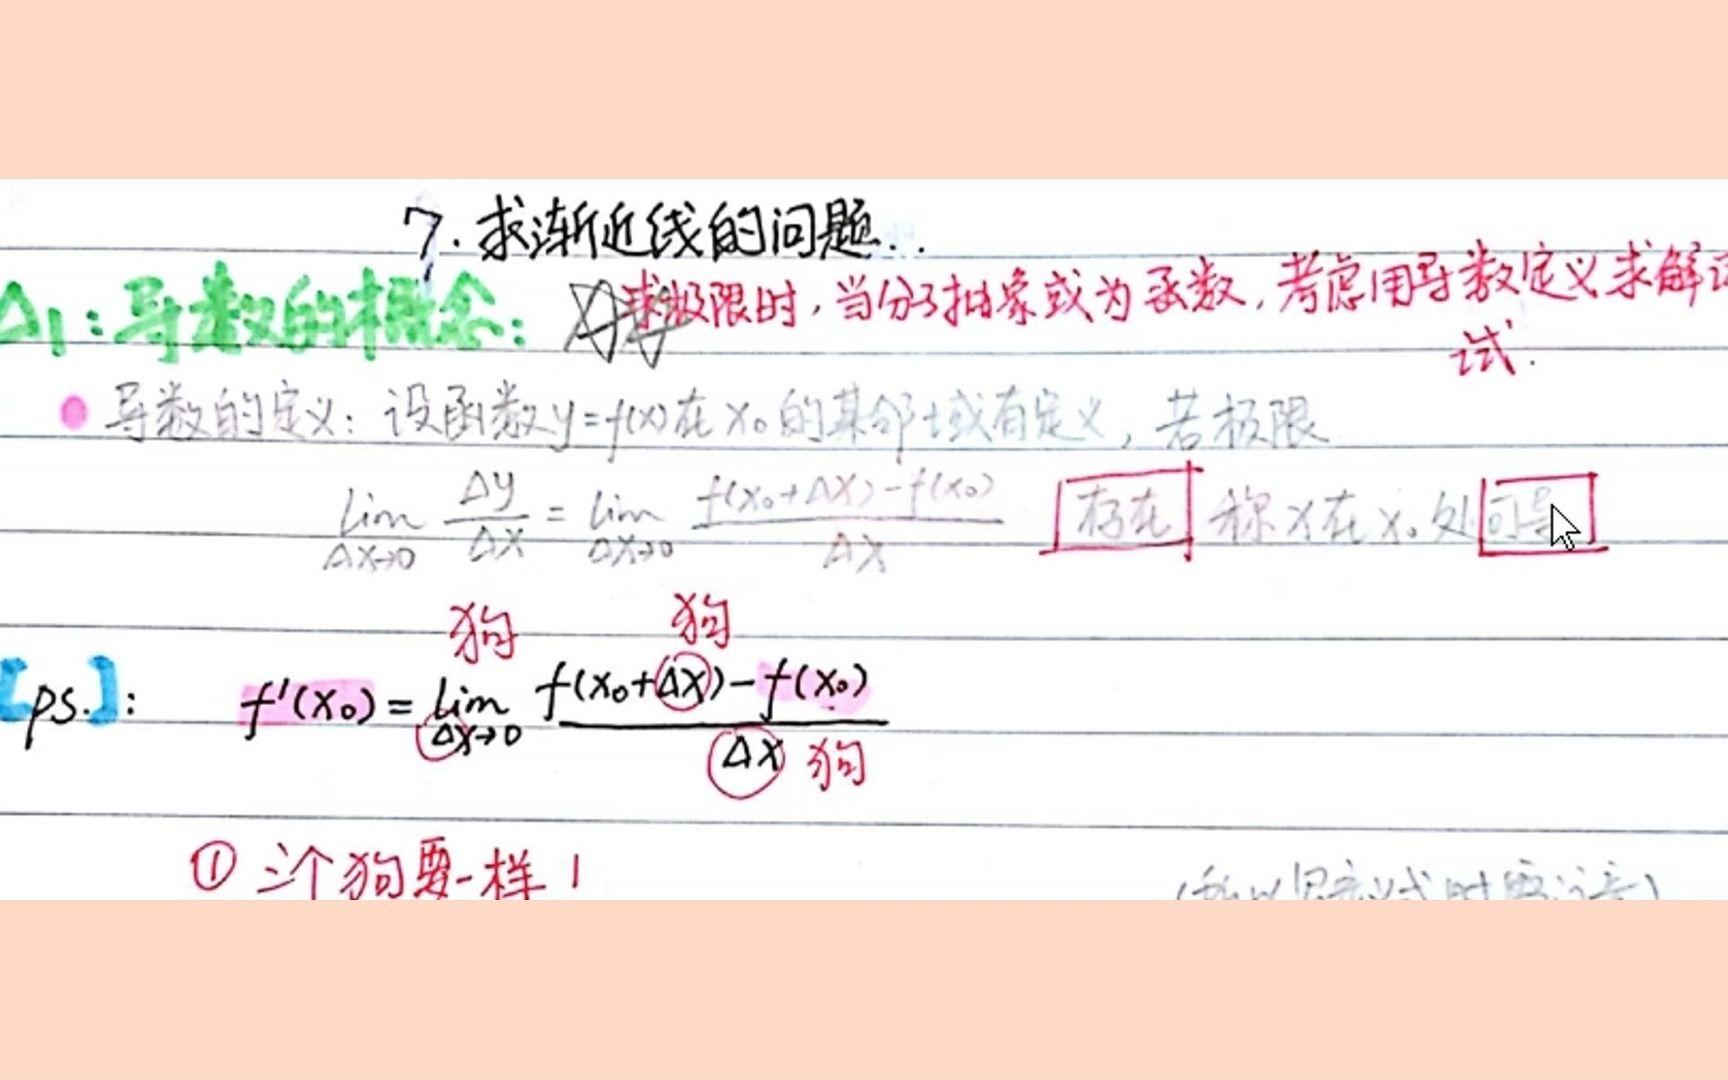 7. 求渐近线的问题..
△1:导数的概念: 求极限时,当分子抽象或为函数,考虑用导数定义求解试试.
导数的定义: 设函数y=f(x)在x₀的某邻域有定义,若极限
lim Δx→0 Δy/Δx = lim Δx→0 (f(x₀+Δx)-f(x₀))/Δx 存在 称x在x₀处可导
狗 狗
[ps.]: f'(x₀) = lim Δx→0 (f(x₀+Δx)-f(x₀))/Δx 狗
① 三个狗要一样!